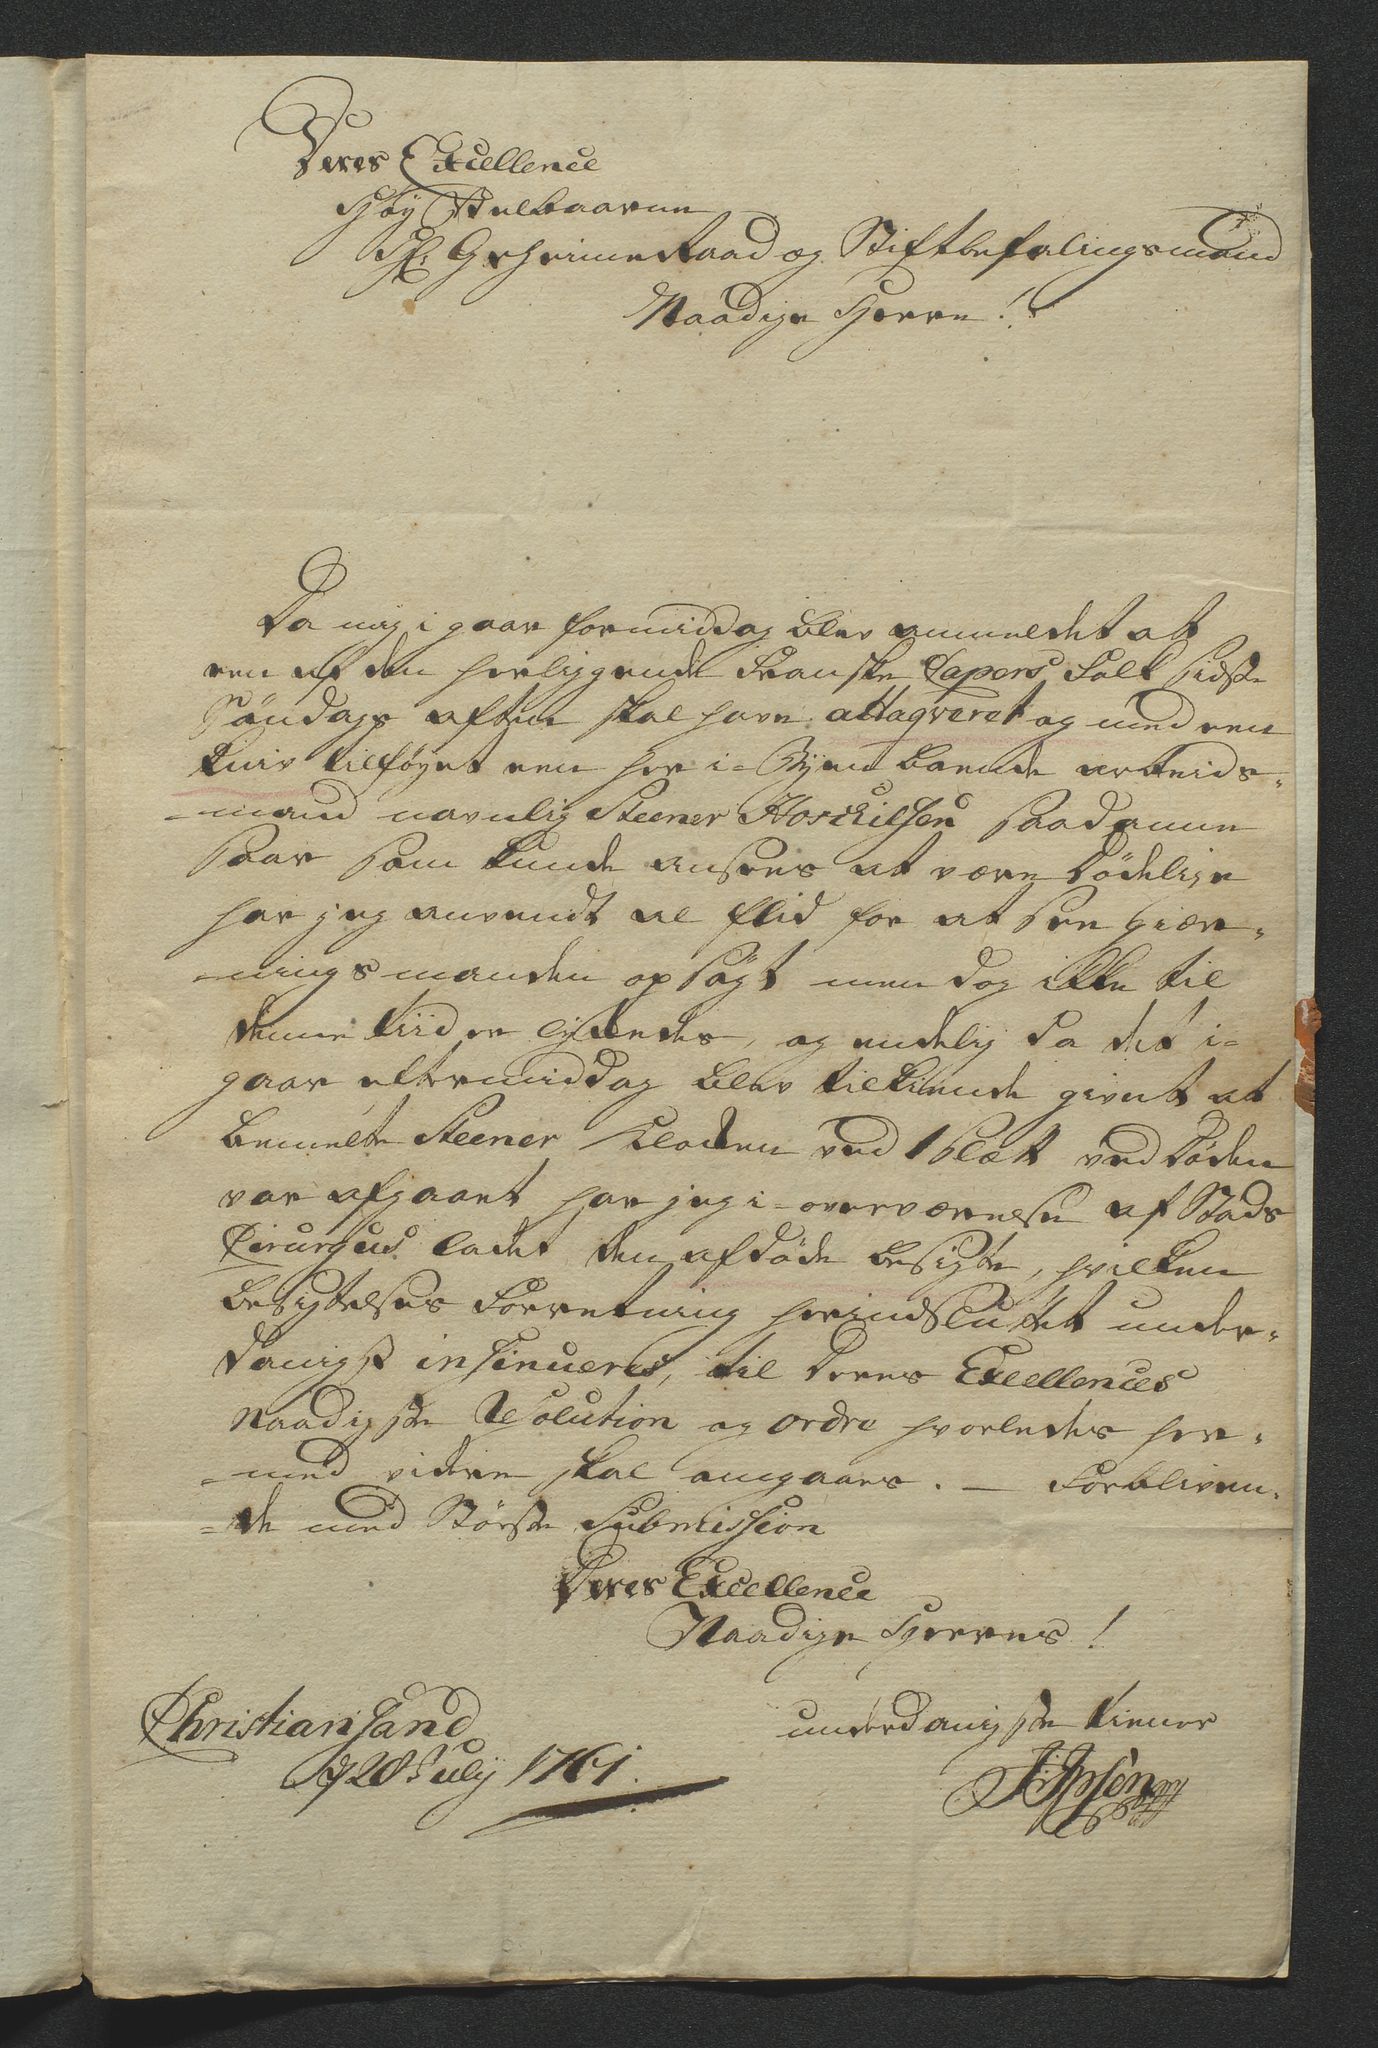 Deres Excellence
Høy Velbaarne
Hr. Geheime Raad og Stiftbefalingsmand
Naadige Herre!
Da mig i gaar formiddag blev anmeldet at
een af den herliggende Franske Capers Folk sidste
Søndags aften skal have attaqveret og med een
kniv tilføyet een her i- Byen boende arbeids-
-mand navnlig Steener Torkilsen saadanne
Saar som kunde ansees at være dødelige
har jeg anvendt al flid for at see gier-
-nings manden opsøgt men dog ikke til
denne tiid er lykkedes, og endelig da det i-
gaar eftermiddag blev tilkiende givet at
bemelte Steener Klocken ved 1 slæt ved døden
var afgaaet har jeg i- overværelse af Stads
Chirurgus ladet den afdøde besigte, hvilken
besigtelses Forretning herindsluttet under-
danigst insinueres, til Deres Excellences
Naadigste Resolution og ordre hvorledes her-
-med videre skal omgaaes. — Forbliven-
-de med Største Submission
Deres Excellence
Naadige Herres!
Christiansand
d 28 July 1761.
underdanigste tiener
J Ipsen